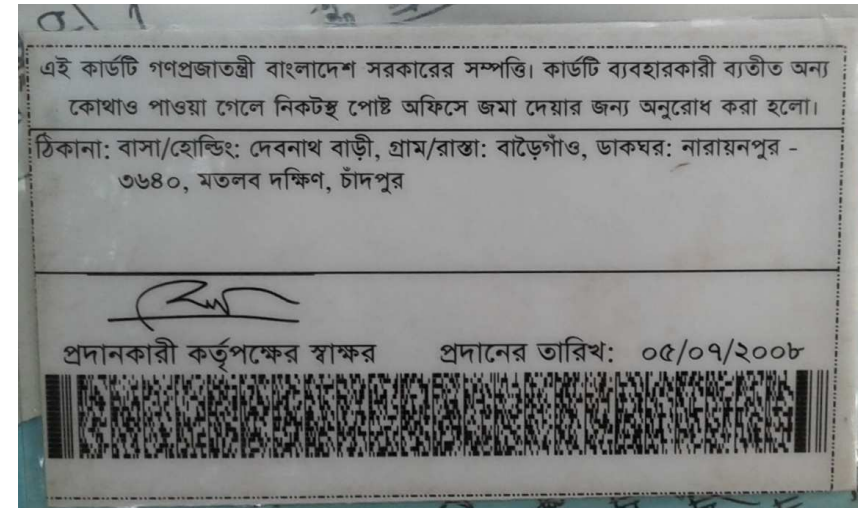 এই কার্ডটি গণপ্রজাতন্ত্রী বাংলাদেশ সরকারের সম্পত্তি। কার্ডটি ব্যবহারকারী ব্যতীত অন্য
কোথাও পাওয়া গেলে নিকটস্থ পোষ্ট অফিসে জমা দেয়ার জন্য অনুরোধ করা হলো।
ঠিকানা: বাসা/হোল্ডিং: দেবনাথ বাড়ী, গ্রাম/রাস্তা: বাড়ৈগাঁও, ডাকঘর: নারায়নপুর -
৩৬৪০, মতলব দক্ষিণ, চাঁদপুর
প্রদানকারী কর্তৃপক্ষের স্বাক্ষর প্রদানের তারিখ: ০৫/০৭/২০০৮